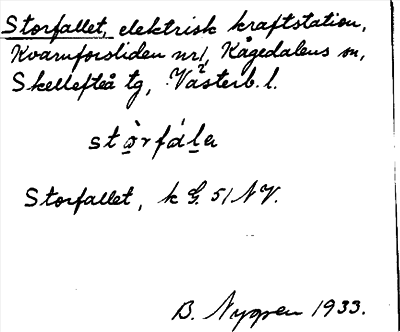 Storfallet, elektrisk kraftstation,
Kvarnforsliden nr 1, Kågedalens sn,
Skellefteå tg, Västerb. l.
stòrfála
Storfallet, k G. 51 NV.
B. Nygren 1933.